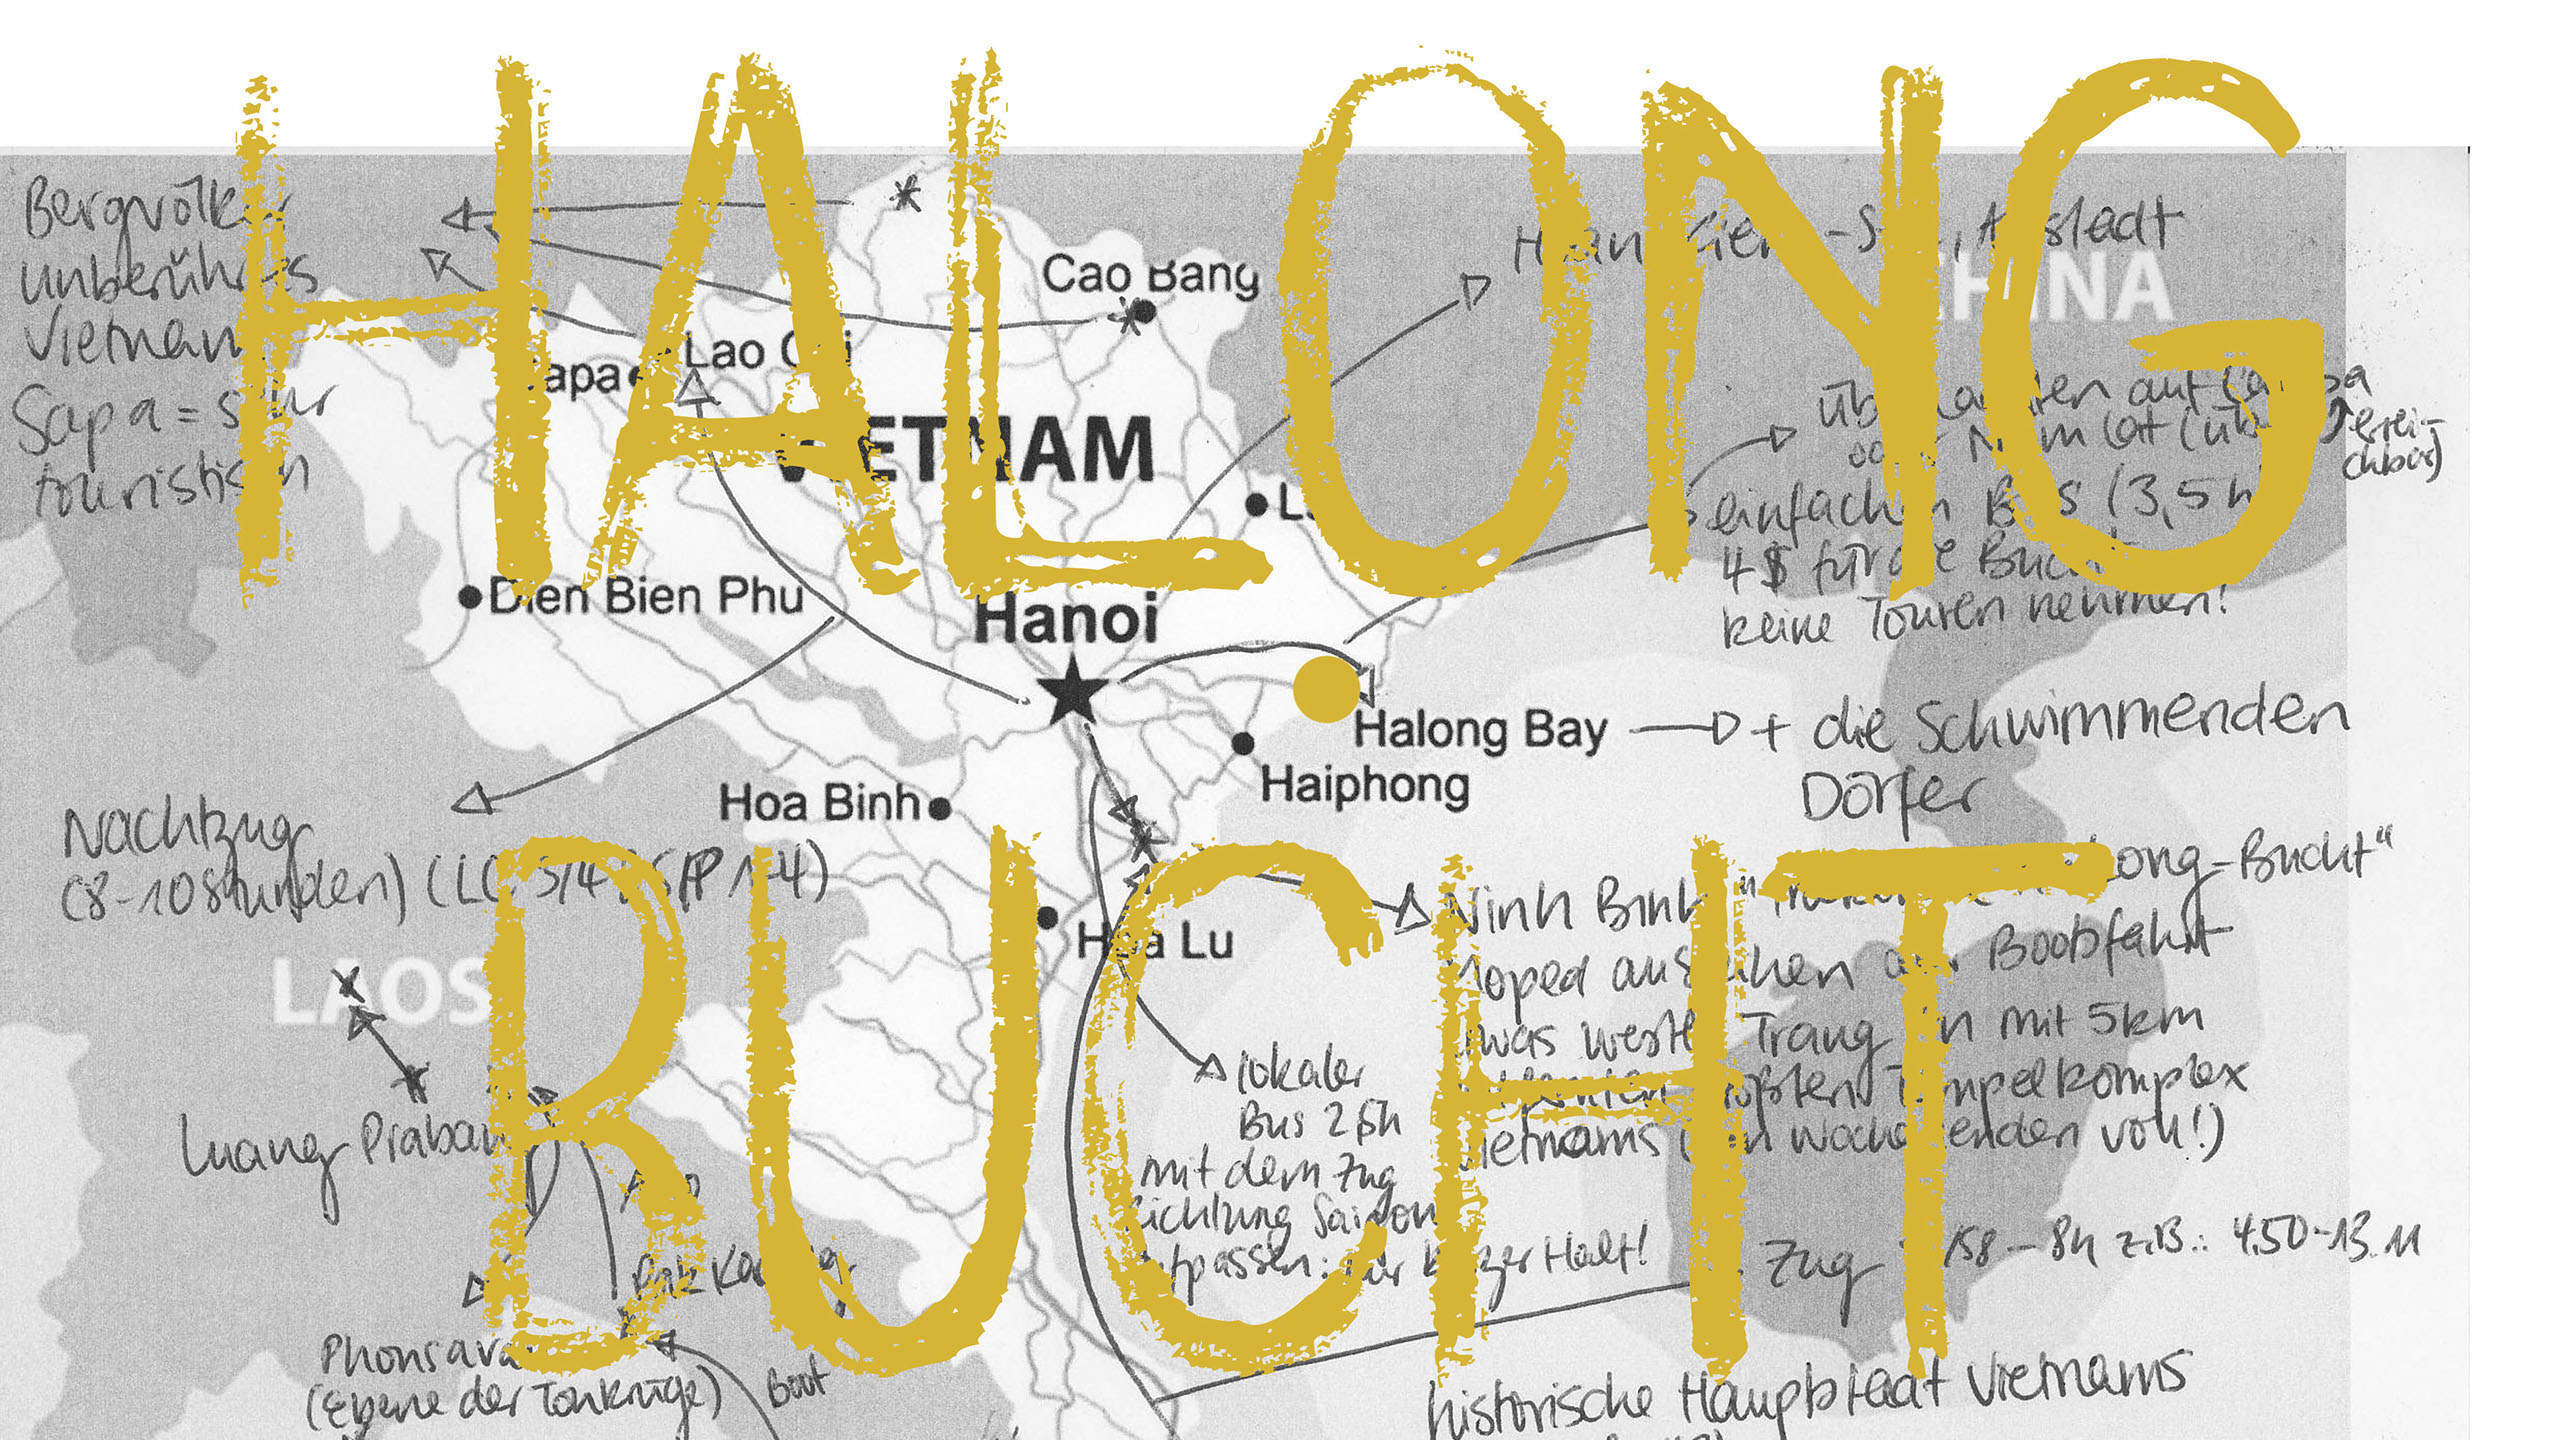 HALONG
BUCHT
Bergvölker
unberührtes
Vietnam
Sapa = sehr
touristisch
Cao Bang
Lao Cai
Sapa
VIETNAM
CHINA
Altstadt
einfachen Bus (3,5 h
4 $ für die Bucht
keine Touren nehmen!
Dien Bien Phu
Hanoi
Halong Bay + die Schwimmenden
Dörfer
Haiphong
Hoa Binh
Nachtzug
(8-10 Stunden)
Hoa Lu
LAOS
Ninh Binh Long-Bucht"
Moped ausleihen Bootsfahrt
Trang An mit 5km
größten Tempelkomplex
Vietnams (an Wochenenden voll!)
lokaler
Bus 2,5h
mit dem Zug
Richtung Saigon
aufpassen: nur kurzer Halt!
Luang Prabang
Zug 8h z.B.: 4.50-13.11
Phonsavan
(Ebene der Tonkrüge)
Boot
historische Hauptstadt Vietnams